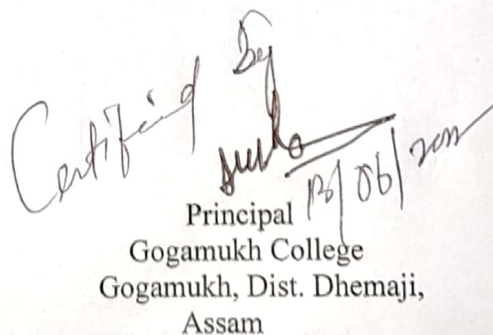 Certified By
Principal
Gogamukh College
Gogamukh, Dist. Dhemaji,
Assam